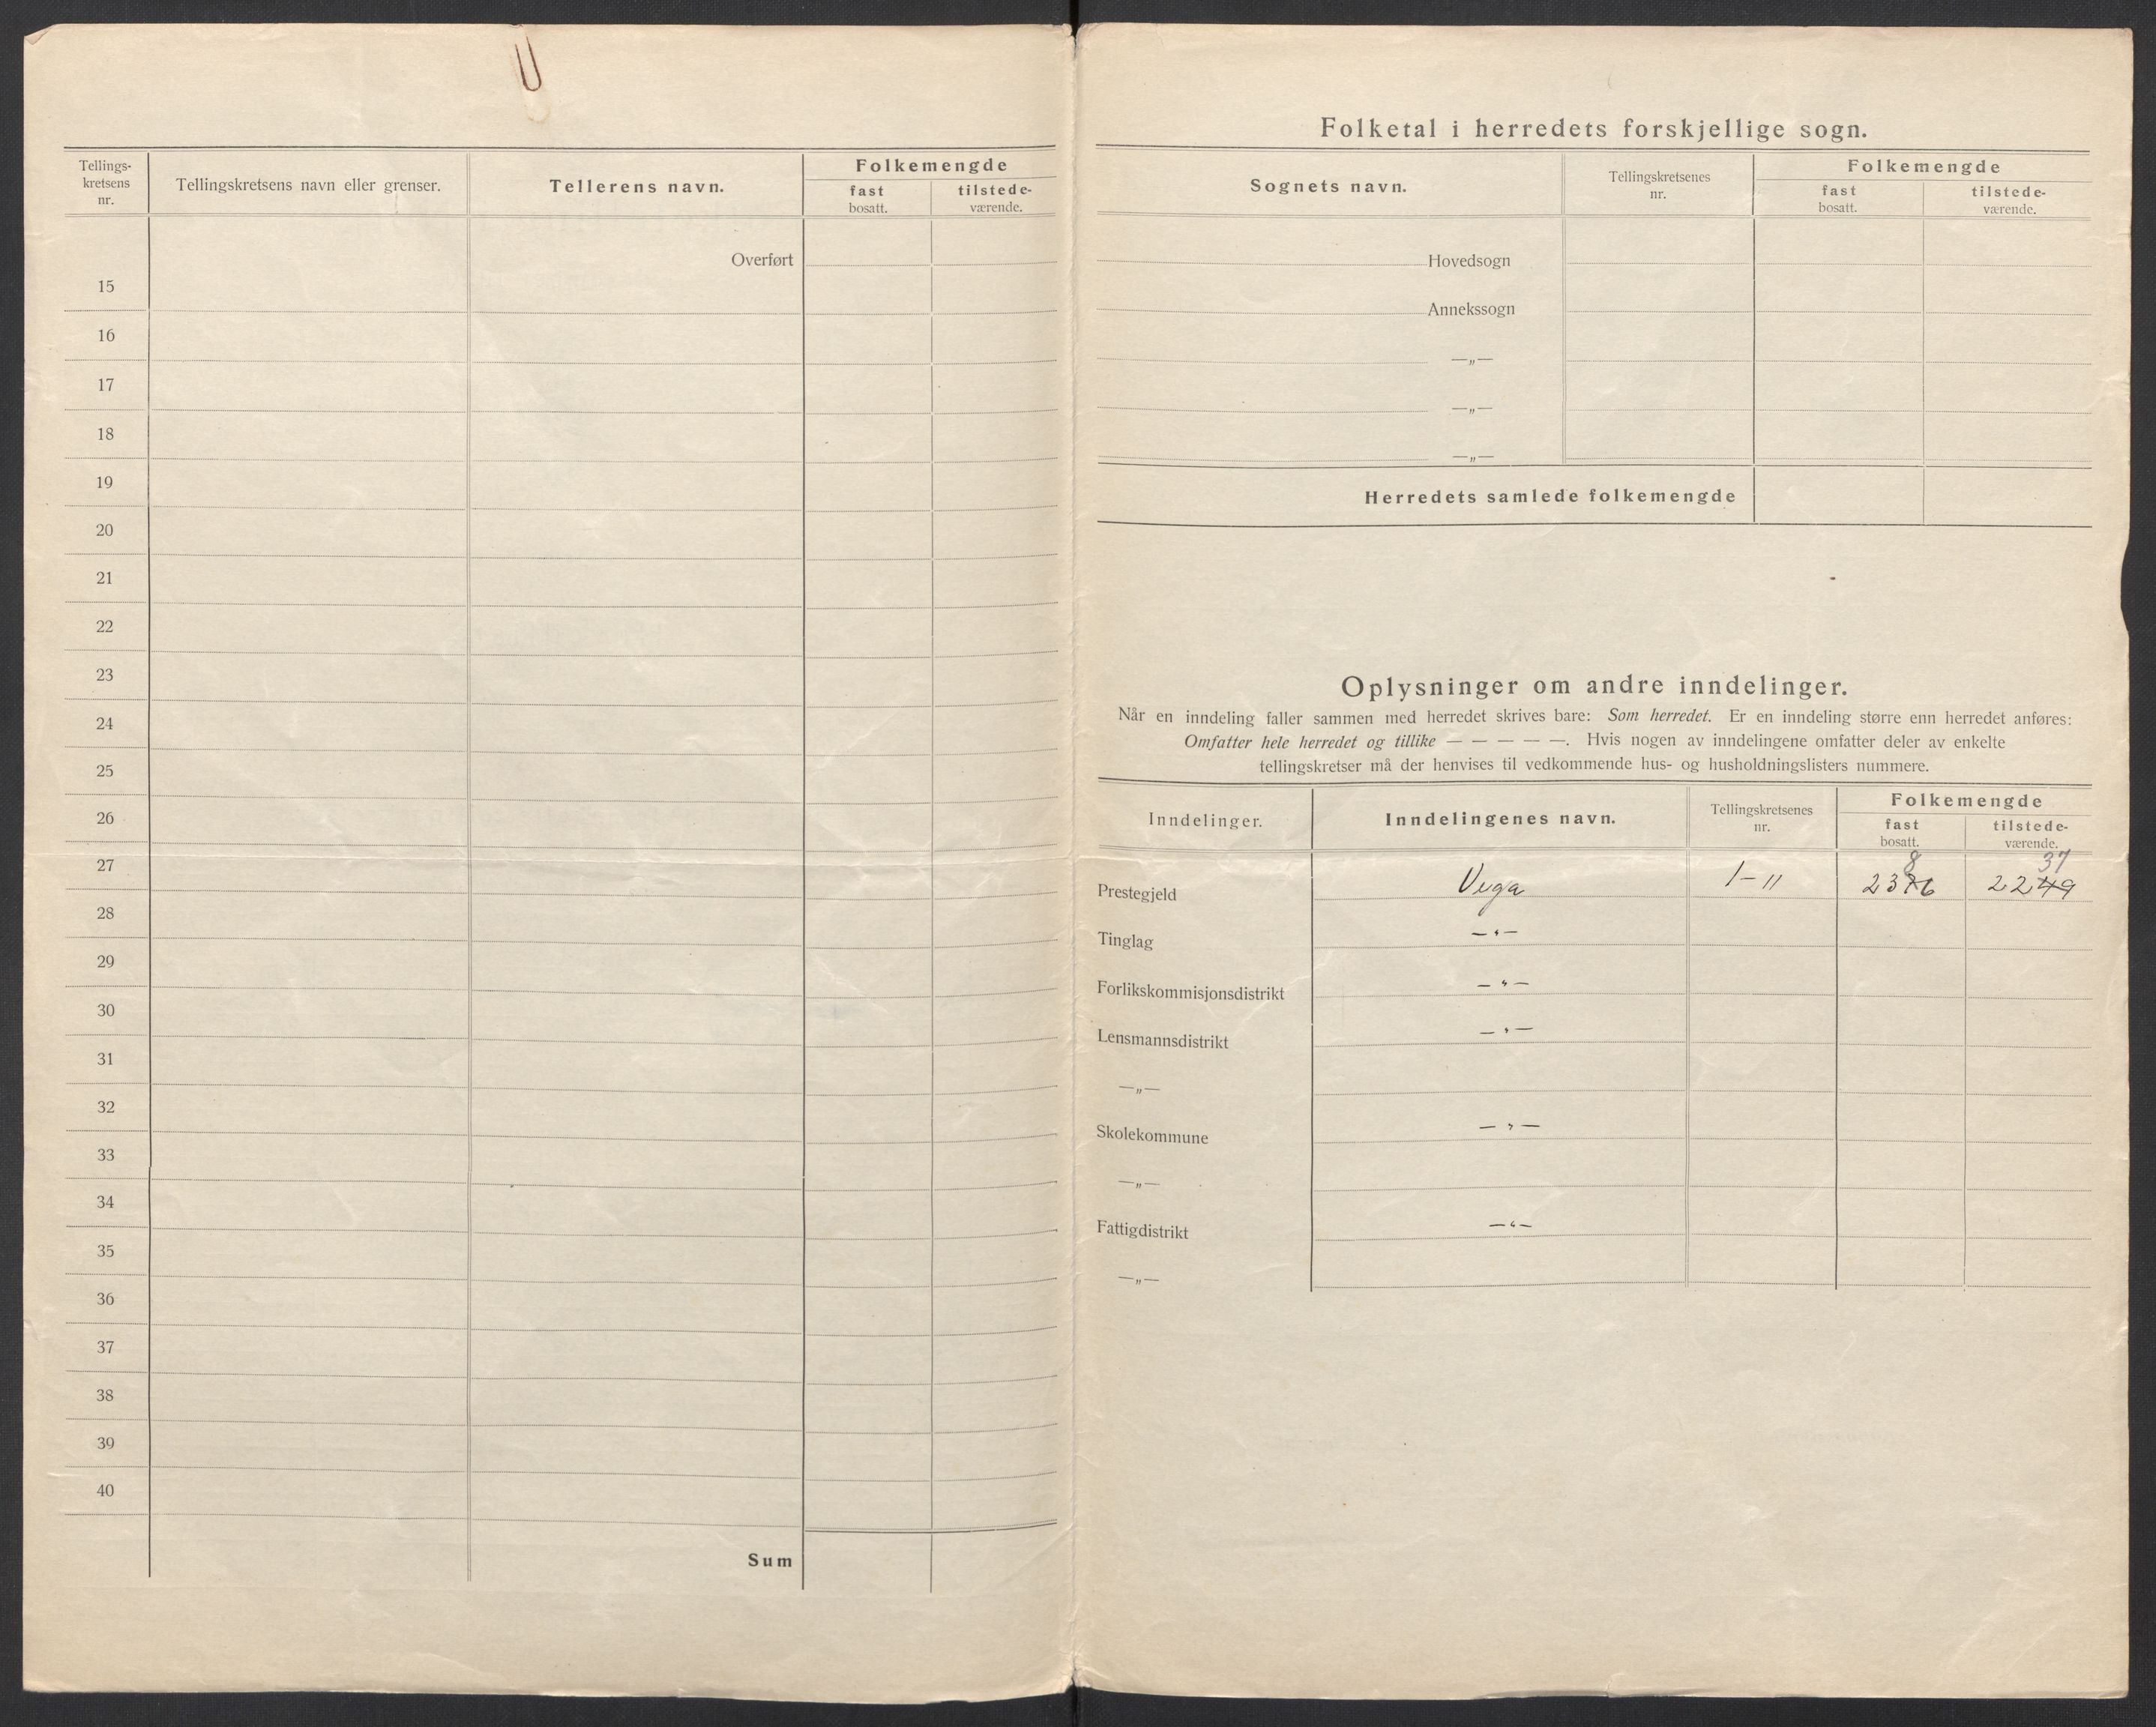 Tellings-
kretsens
nr.
Tellingskretsens navn eller grenser.
Tellerens navn.
Folkemengde
fast
bosatt.
tilstede-
værende.
Overført
15
16
17
18
19
20
21
22
23
24
25
26
27
28
29
30
31
32
33
34
35
36
37
38
39
40
Sum
Folketal i herredets forskjellige sogn.
Sognets navn.
Tellingskretsenes
nr.
Folkemengde
fast
bosatt.
tilstede-
værende.
Hovedsogn
Annekssogn
—„—
—„—
—„—
Herredets samlede folkemengde
Oplysninger om andre inndelinger.
Når en inndeling faller sammen med herredet skrives bare: Som herredet. Er en inndeling større enn herredet anføres:
Omfatter hele herredet og tillike — — — — —. Hvis nogen av inndelingene omfatter deler av enkelte
tellingskretser må der henvises til vedkommende hus- og husholdningslisters nummere.
Inndelinger.
Inndelingenes navn.
Tellingskretsenes
nr.
Folkemengde
fast
bosatt.
tilstede-
værende.
8 37
Prestegjeld Vega 1-11 2376 2249
Tinglag —"—
Forlikskommisjonsdistrikt —"—
Lensmannsdistrikt —"—
—„—
Skolekommune —"—
—„—
Fattigdistrikt —"—
—„—